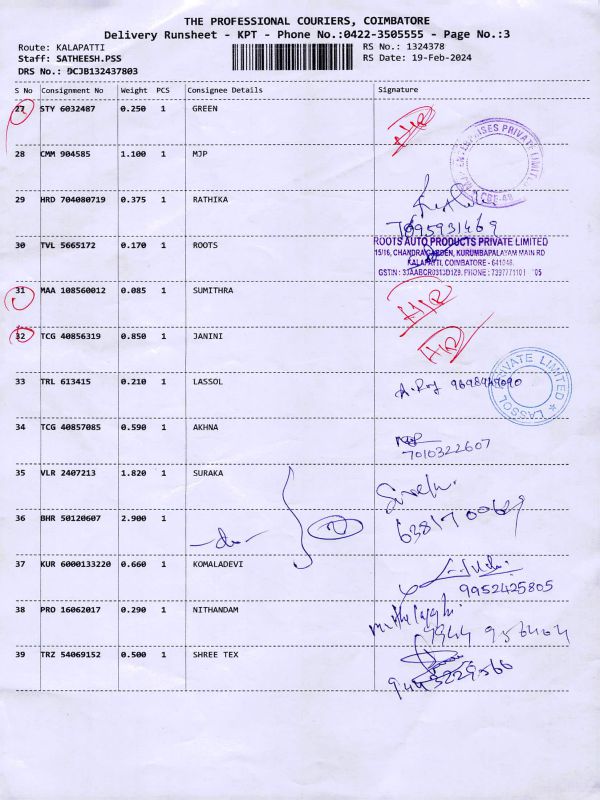 THE PROFESSIONAL COURIERS, COIMBATORE
Delivery Runsheet - KPT - Phone No.:0422-3505555 - Page No.:3
Route: KALAPATTI RS No.: 1324378
Staff: SATHEESH.PSS RS Date: 19-Feb-2024
DRS No.: DCJB132437803
S No Consignment No Weight PCS Consignee Details Signature
27 STY 6032487 0.250 1 GREEN
28 CMM 904585 1.100 1 MJP
29 HRD 704080719 0.375 1 RATHIKA
7095931469
30 TVL 5665172 0.170 1 ROOTS
ROOTS AUTO PRODUCTS PRIVATE LIMITED
15/16, CHANDRA GARDEN, KURUMBAPALAYAM MAIN RD
KALAPATTI, COIMBATORE - 641048.
31 MAA 108560012 0.085 1 SUMITHRA
32 TCG 40856319 0.850 1 JANINI
33 TRL 613415 0.210 1 LASSOL
LASSOL PRIVATE LIMITED
34 TCG 40857085 0.590 1 AKHNA
7010322607
35 VLR 2407213 1.820 1 SURAKA
36 BHR 50120607 2.900 1
-do- 2
37 KUR 6000133220 0.660 1 KOMALADEVI
9952425805
38 PRO 16062017 0.290 1 NITHANDAM
39 TRZ 54069152 0.500 1 SHREE TEX